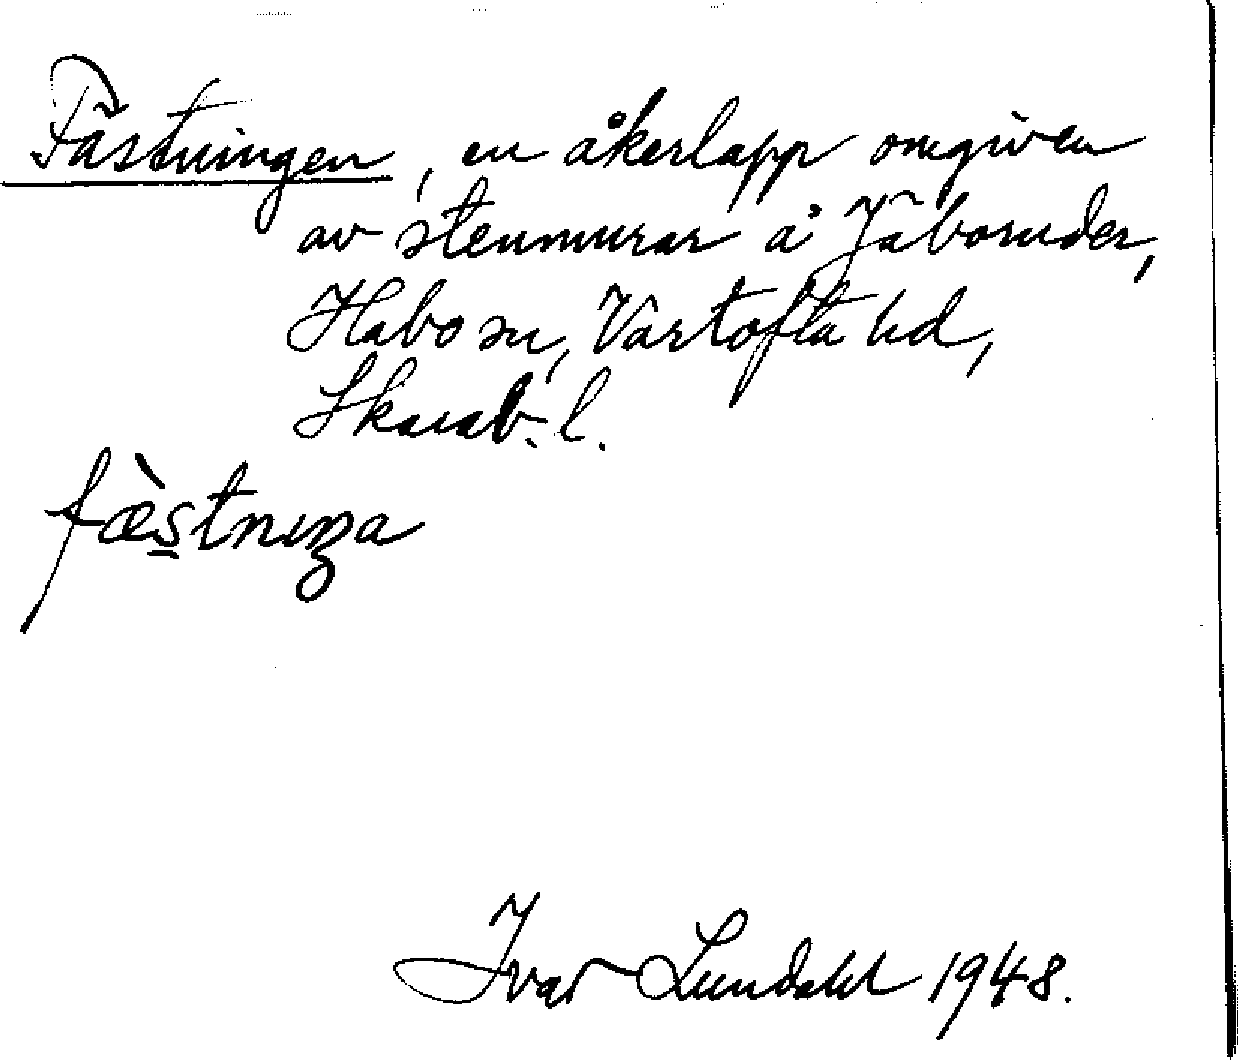 Fästningen, en åkerlapp omgiven
av stenmurar å Jäboruder,
Habo sn, Vartofta hd,
Skarab. l.
fæ̀s̲tnıŋa
Ivar Lundahl 1948.